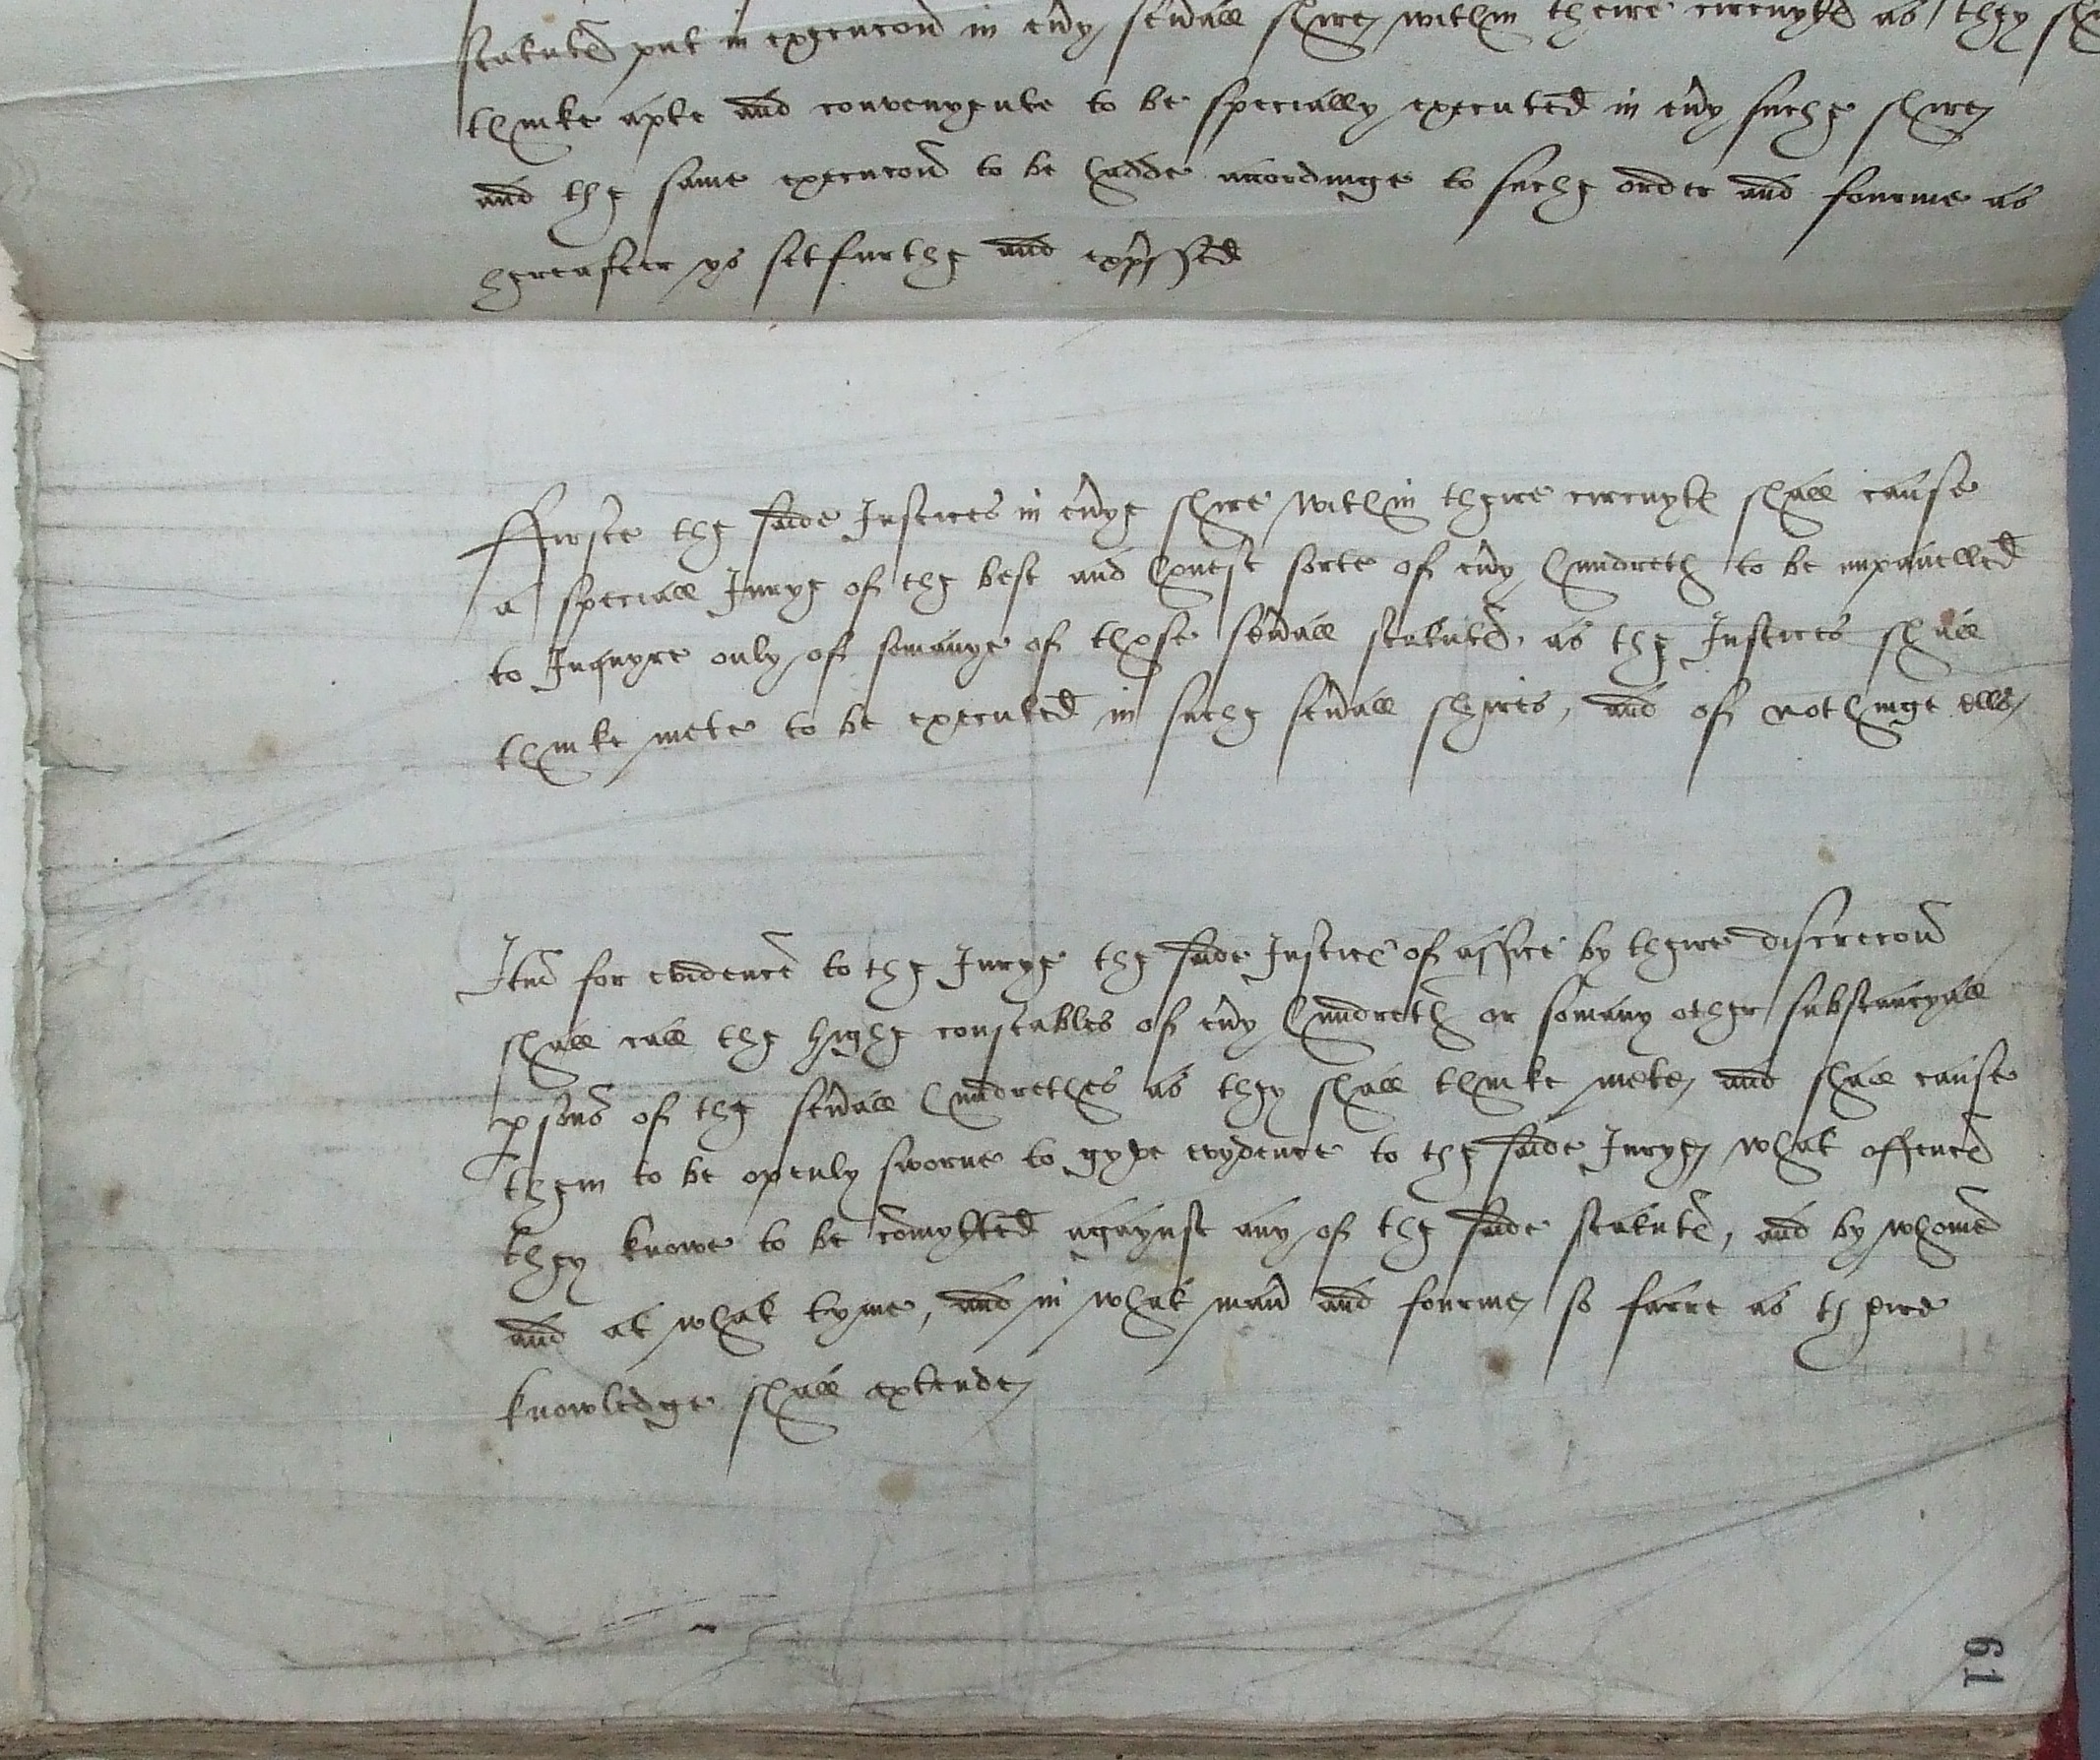 statut(es) put in execucon in ev(er)y sev(er)all shire within theire circuyt(es) as they
thinke apte and convenyente to be specially executed in ev(er)y suche shire
and the same execucon to be hadde accordinge to suche order and fourme as
hereafter ys setfurthe and exp(re)ssed
Ffirste the saide Justices in ev(er)ye shire within theire circuyt(es) shall cause
a speciall Jurye of the best and honest sorte of ev(er)y hundreth to be impanelled
to Inquyre only of somanye of those sev(er)all statut(es), as the Justices shall
thinke mete to be executed in suche sev(er)all sheires, and of nothinge ells
Itm for evidence to the Jurye the saide Justic(es) of assise by theire discrecon
shall call the highe constables of ev(er)y hundreth or somany other substancyall
p(er)sons of the sev(er)all hundrethes as they shall thinke mete, and shall cause
them to be openly sworne to gyve evydence to the saide Jurye, what offenc(es)
they knowe to be comytted agaynst any of the saide statut(es), and by whome
and at what tyme, and in what man(er) and fourme, so farre as theire
knowledge shall extende
61